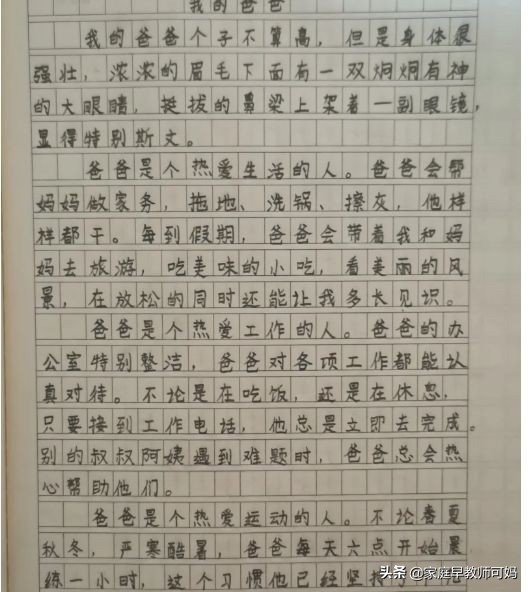 我的爸爸
我的爸爸个子不算高，但是身体很
强壮，浓浓的眉毛下面有一双炯炯有神
的大眼睛，挺拔的鼻梁上架着一副眼镜，
显得特别斯文。
爸爸是个热爱生活的人。爸爸会帮
妈妈做家务，拖地、洗锅、擦灰，他样
样都干。每到假期，爸爸会带着我和妈
妈去旅游，吃美味的小吃，看美丽的风
景，在放松的同时还能让我多长见识。
爸爸是个热爱工作的人。爸爸的办
公室特别整洁，爸爸对各项工作都能认
真对待。不论是在吃饭，还是在休息，
只要接到工作电话，他总是立即去完成。
别的叔叔阿姨遇到难题时，爸爸总会热
心帮助他们。
爸爸是个热爱运动的人。不论春夏
秋冬，严寒酷暑，爸爸每天六点开始晨
练一小时，这个习惯他已经坚持
头条 @家庭早教师可妈